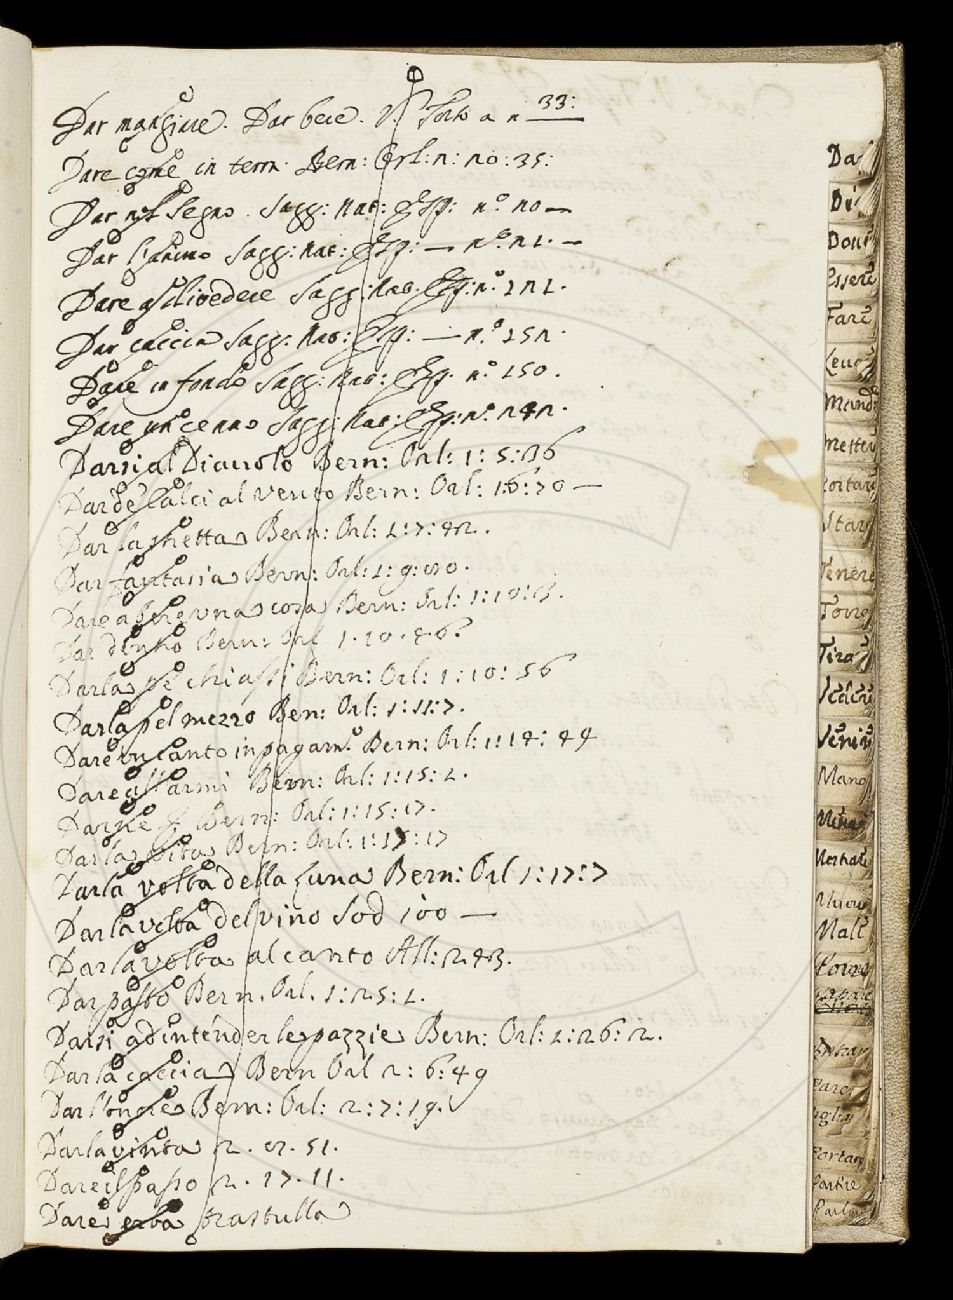 Dar mangiare. Dar bere. V. a n 33:
Dare come in terra Bern: Orl: n: no: 35:
Dar nel segno. Sagg: Nat: Esp: n.º no —
Dar l'animo Sagg: Nat: Esp: — n.º n1. —
Dare a divedere Sagg: Nat. Esp: n.º 1n1.
Dar caccia Sagg: Nat: Esp: — n.º 15n.
Dare in fondo Sagg: Nat: Esp. n.º 150.
Dare un cenno Sagg: Nat: Esp: n.º n4n.
Darsi al Diavolo Bern: Orl: 1: 5: 36
Dar de calci al vento Bern: Orl: 1:6:70 —
Dar la stretta Bern: Orl: 1:7:42.
Dar fantasia Bern: Orl: 1: 9:
Dare a una cosa Bern: Orl: 1:10:
Dar dentro Bern: Orl 1.10.
Darla pe chiassi Bern: Orl: 1:10: 56
Darla pel mezzo Ben: Orl: 1:11:7.
Dare un canto in pagam.º Bern: Orl: 1:14: 44
Dare all'armi Bern: Orl: 1:15: 2.
Darne Bern: Orl: 1:15:17.
Dar la vita Bern: Orl: 1:17:17
Dar la volta della Luna Bern: Orl 1:17:7
Dar la volta del vino Sod 100 —
Dar la volta al canto All: 243.
Dar pasto Bern. Orl. 1:25:2.
Darsi ad intender le pazzie Bern: Orl: 1:26:2.
Dar la caccia Bern Orl 2: 6:49
Dar l'ongie Bern: Orl: 2:7:19.
Dar la vinta 2. 51.
Dare il passo 2. 17. 11.
Dare erba trastulla
Dar
Di
Dove
Essere
Fare
Leva
Mand
Mette
Portare
Star
Tenere
Torre
Tira
Vedere
Venir
Mano
Mena
Mostrare
Muove
Mall
Entrar
Parer
Portar
Partire
Parla